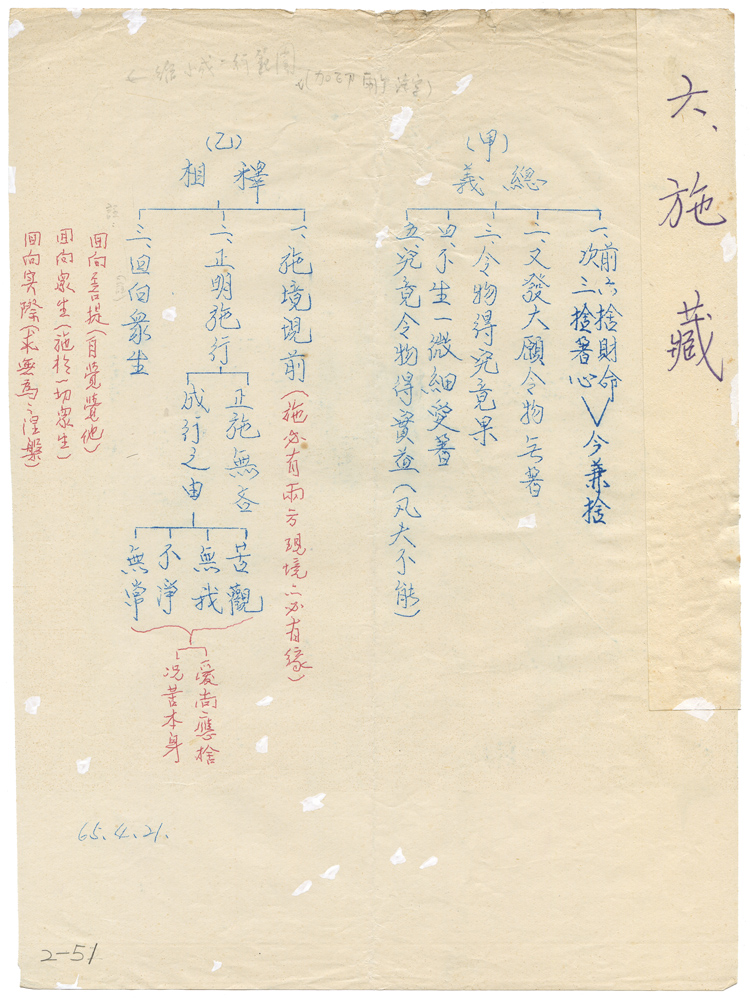 六、施藏
(甲)
總義
一、前六捨財命
次三捨著心
今兼捨
二、又發大願令物無著
三、令物得究竟果
四、不生一微細愛著
五、究竟令物得實益(凡夫不能)
(乙)
釋相
一、施境現前(施必有兩方現境亦必有緣)
二、正明施行
正施無吝
成行之由
苦觀
無我
不淨
無常
愛尚應捨
況苦本身
三、回向衆生
回向菩提(自覺覺他)
回向衆生(施於一切衆生)
回向实際(求無為之涅槃)
65.4.21.
2-51